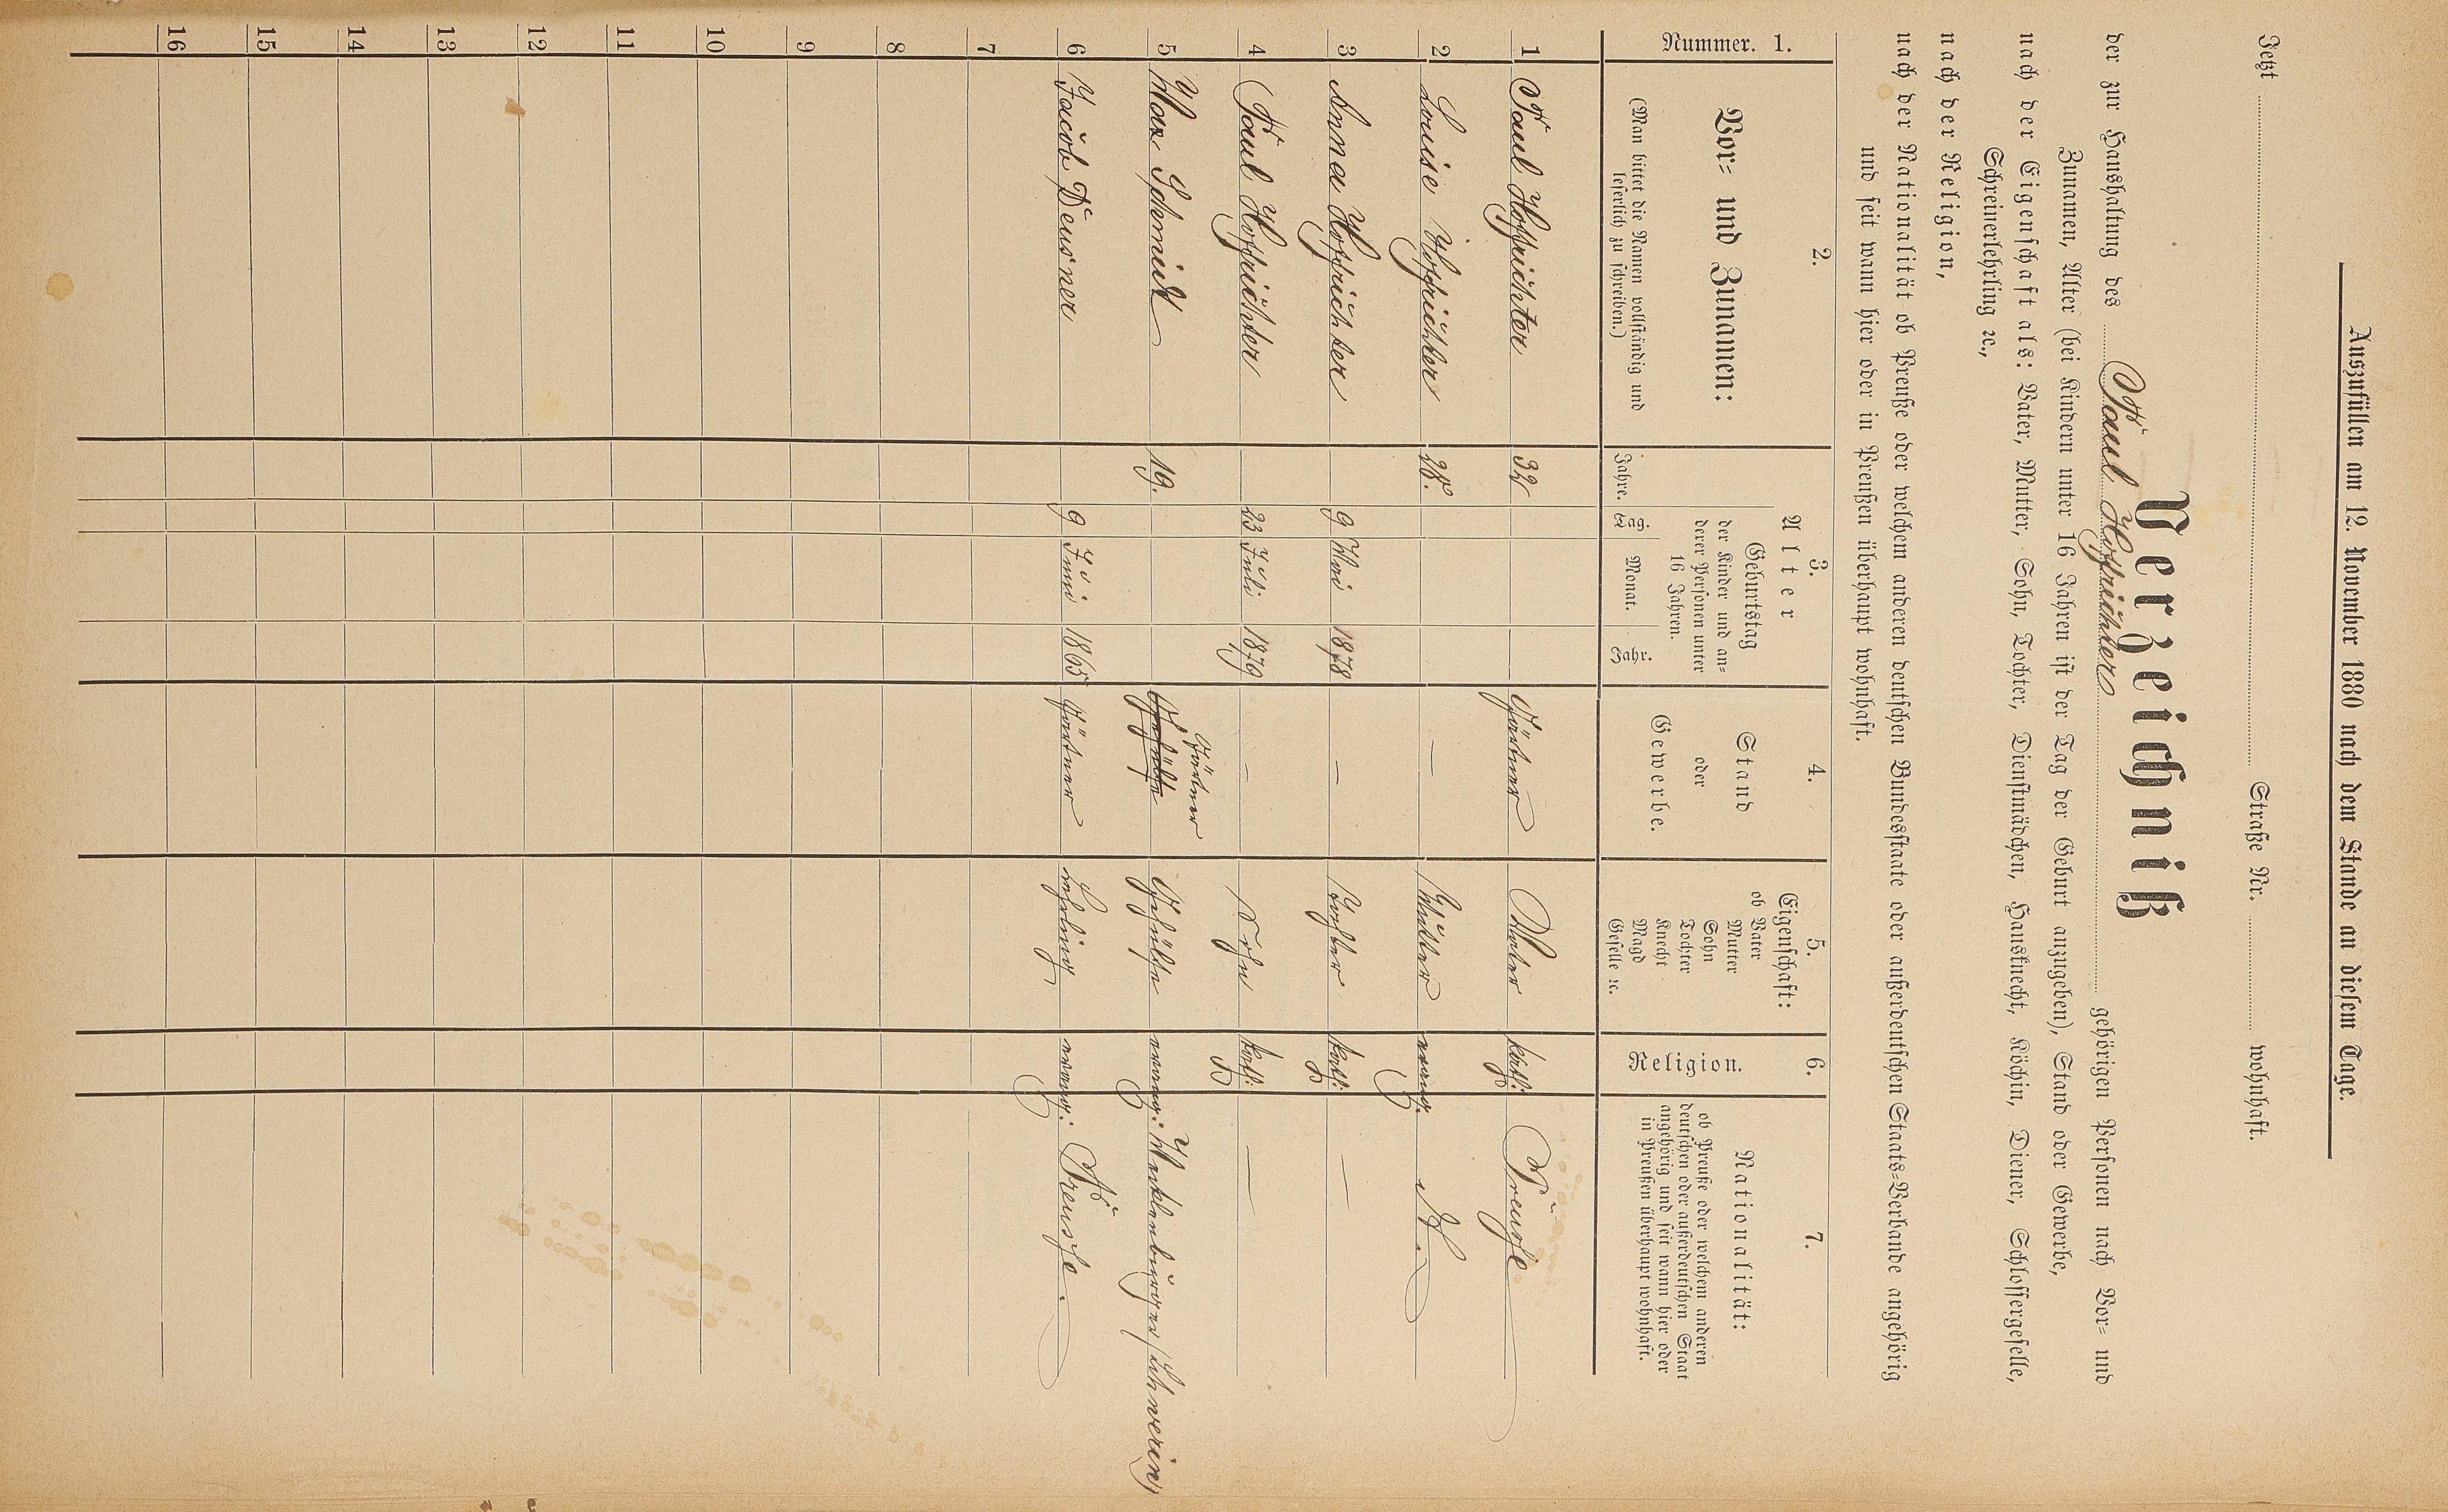 Auszufüllen am 12. November 1880 nach dem Stande an diesem Tage.
Jetzt Straße Nr. wohnhaft.
Verzeichniß
der zur Haushaltung des Paul Hoffrichter gehörigen Personen nach Vor- und
Zunamen, Alter (bei Kindern unter 16 Jahren ist der Tag der Geburt anzugeben), Stand oder Gewerbe,
nach der Eigenschaft als: Vater, Mutter, Sohn, Tochter, Dienstmädchen, Hausknecht, Köchin, Diener, Schlossergeselle,
Schreinerlehrling ꝛc.,
nach der Religion,
nach der Nationalität ob Preuße oder welchem anderen deutschen Bundesstaate oder außerdeutschen Staats-Verbande angehörig
und seit wann hier oder in Preußen überhaupt wohnhaft.
Nummer. 1.
2.
Vor- und Zunamen:
(Man bittet die Namen vollständig und
leserlich zu schreiben.)
3.
Alter
Jahre.
Geburtstag
der Kinder und an-
derer Personen unter
16 Jahren.
Tag. Monat. Jahr.
4.
Stand
oder
Gewerbe.
5.
Eigenschaft:
ob Vater
Mutter
Sohn
Tochter
Knecht
Magd
Geselle ꝛc.
6.
Religion.
7.
Nationalität:
ob Preuße oder welchem anderen
deutschen oder außerdeutschen Staat
angehörig und seit wann hier oder
in Preußen überhaupt wohnhaft.
1 Paul Hoffrichter 32 Gärtner Vater kath: Preuße
2 Louise Hoffrichter 28. — Mutter evang.
3 Anna Hoffrichter 9 Mai 1878 — Tochter kath: —
4 Paul Hoffrichter 23 Juli 1879 — Sohn kath: —
Gärtner
5 Max Schmidt 19. Gehülfe Gehülfe evang: Meklenburger (Schwerin)
6 Jacob Deusner 9 Juni 1865 Gärtner Lehrling evang: Preuße.
7
8
9
10
11
12
13
14
15
16